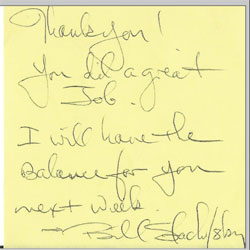 Thank you!
You did a great
Job.
I will have the
Balance for you
next week.
Bill